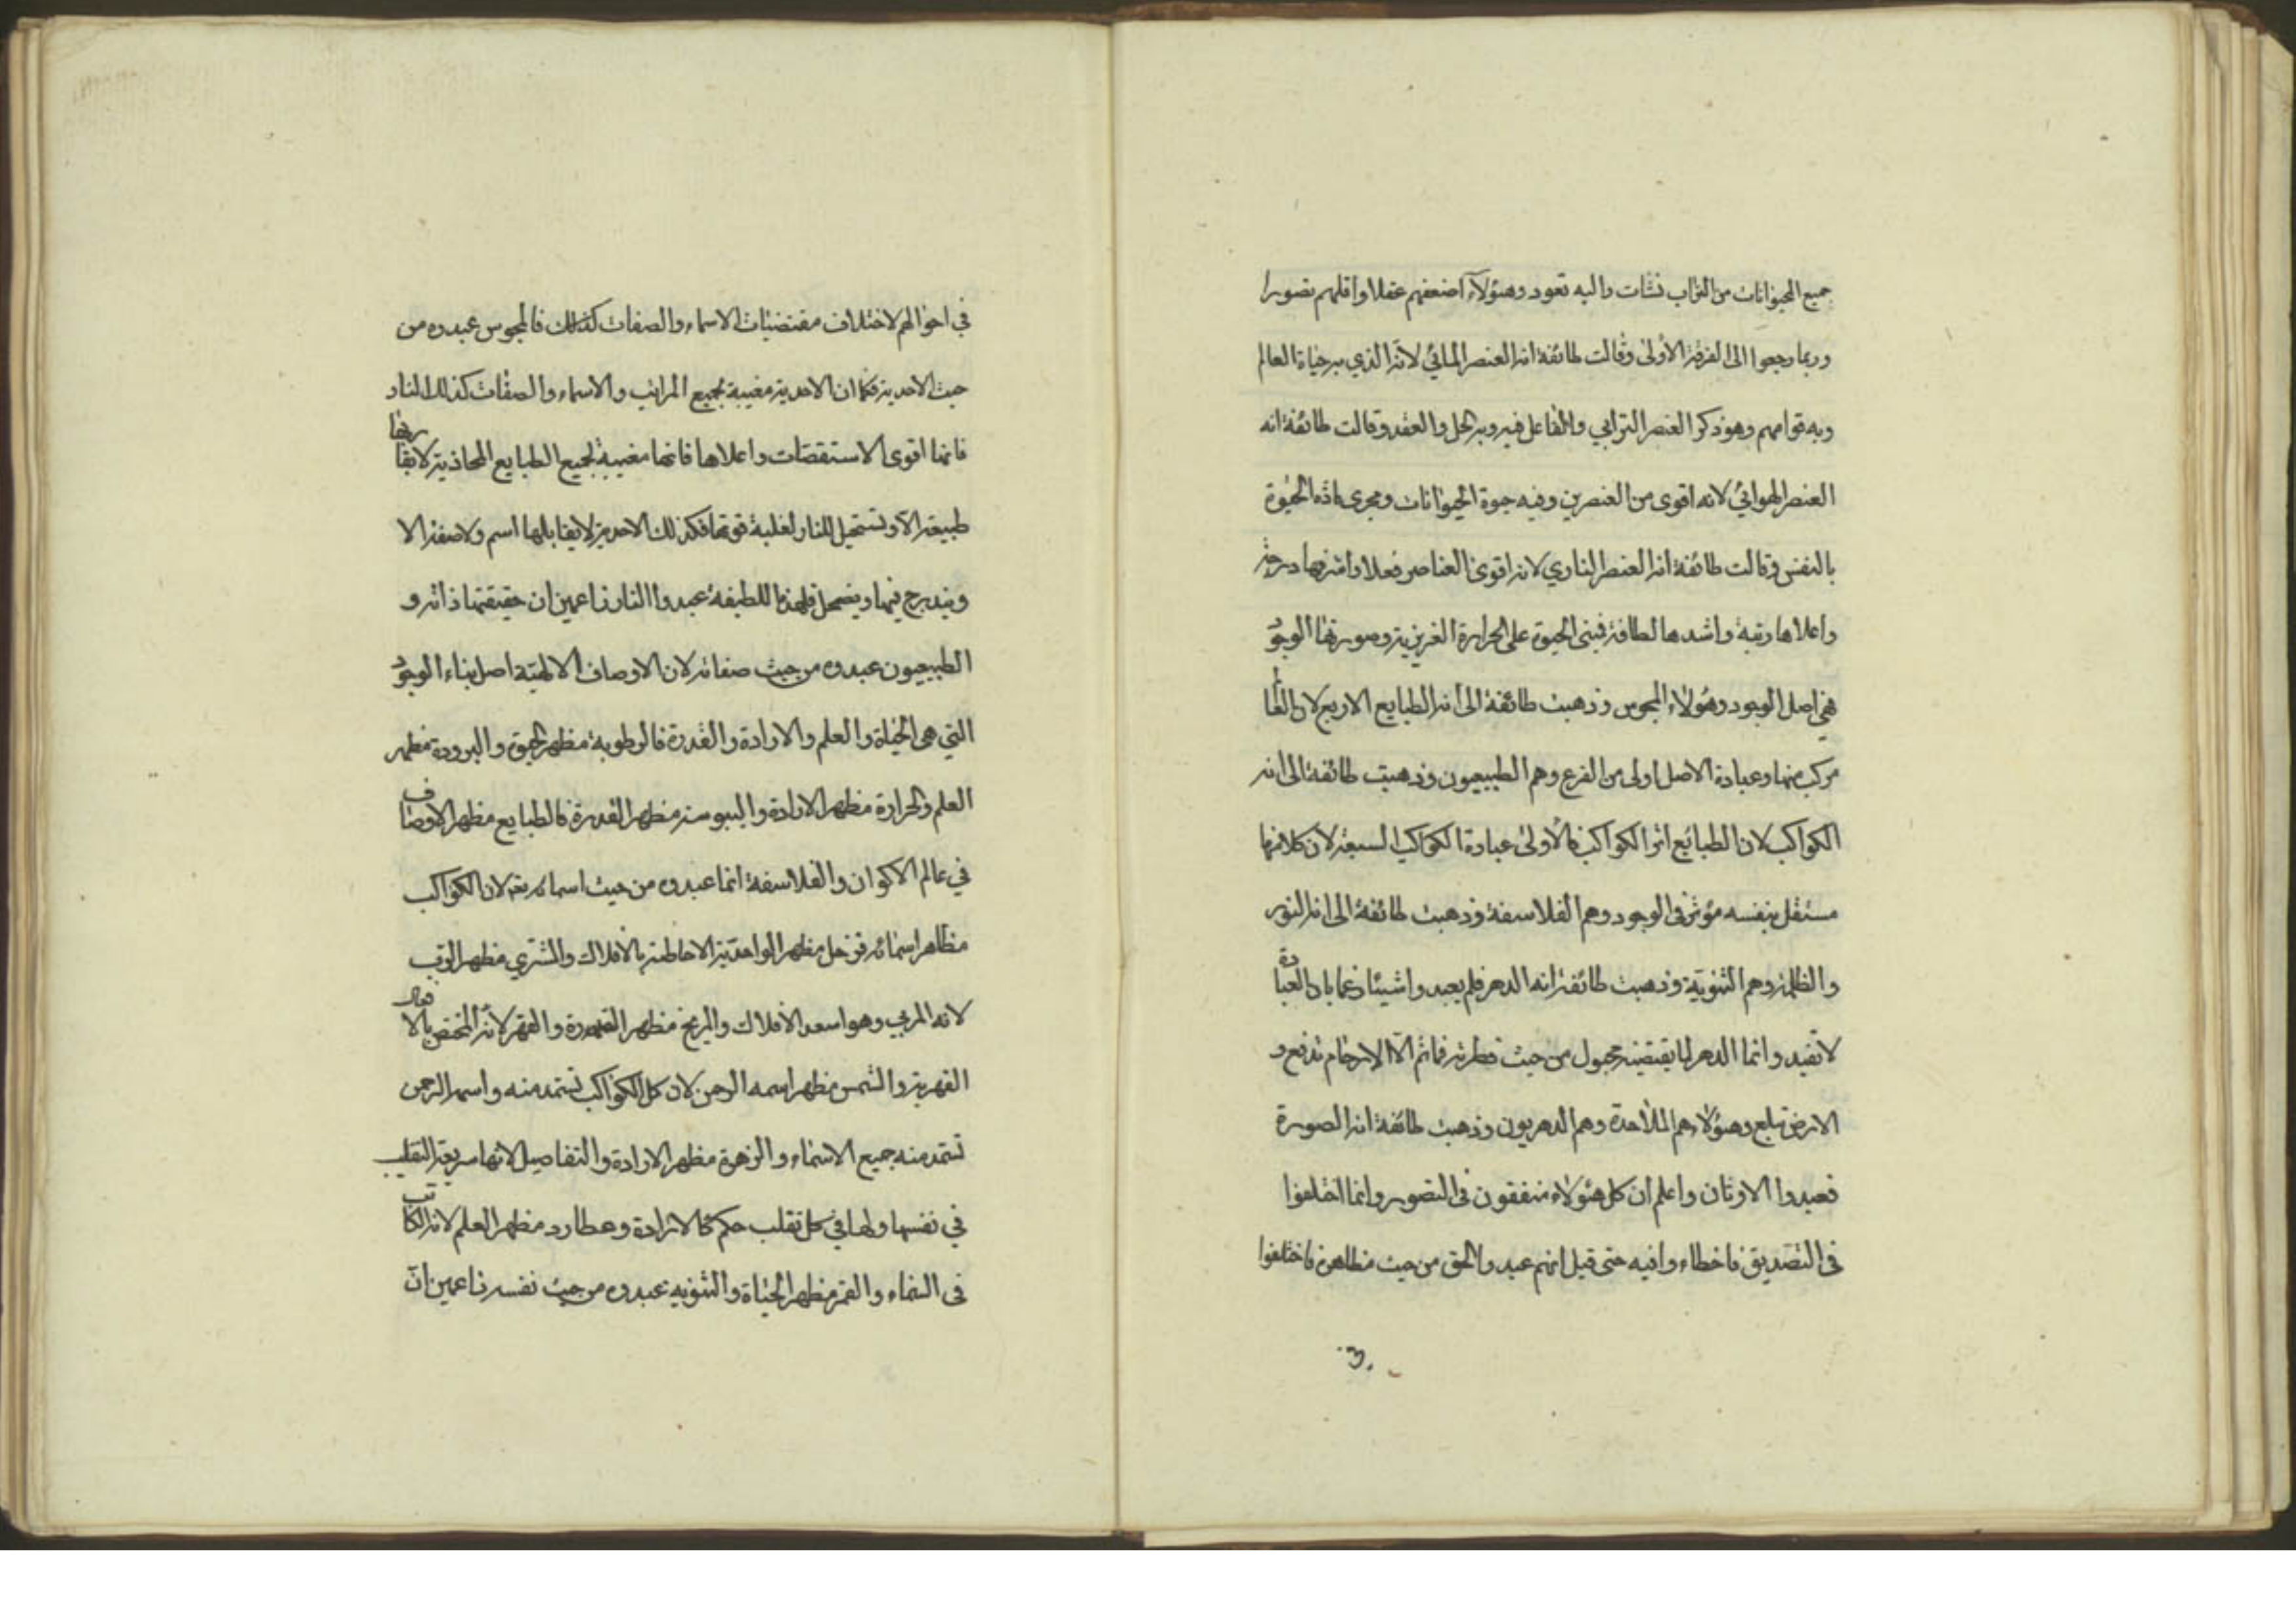 جميع الحيوانات من التراب نشات واليه تعود وهؤلاء اضعفهم عقلا واقلهم تصورا
وربما رجعوا الى الفرقة الأولى وقالت طائفة انه العنصر المائي لانه الذي به حياة العالم
وبه قوامهم وهو ذكر العنصر الترابي والفاعل فيه وبه الحل والعقد وقالت طائفة انه
العنصر الهوائي لانه اقوى من العنصرين وفيه حيوة الحيوانات ومجرى مادة الحيوة
بالنفس وقالت طائفة انه العنصر الناري لانه اقوى العناصر فعلا واشرفها درجة
واعلاها رتبة واشدها لطافة فبنى الحيوة على الحرارة الغريزية وصورتها الوجود
فهي اصل الوجود وهؤلاء المجوس وذهبت طائفة الى انه الطبايع الاربع لان العالم
مركب منها وعبادة الاصل اولى من الفرع وهم الطبيعيون وذهبت طائفة الى انه
الكواكب لان الطبائع اثر الكواكب فالأولى عبادة الكواكب السبعة لان كلا منها
مستقل بنفسه مؤثر في الوجود وهم الفلاسفة وذهبت طائفة الى انه النور
والظلمة وهم الثنوية وذهبت طائفة انه الدهر فلم يعبدوا شيئا زعما بان العبادة
لا تفيد وانما الدهر لما يقتضيه مجبول من حيث فطرته فما ثم الا الارحام تدفع و
الارض تبلع وهؤلاء هم الملاحدة وهم الدهريون وذهبت طائفة انه الصورة
فعبدوا الاوثان واعلم ان كل هؤلاء متفقون في التصور وانما اختلفوا
في التصديق فاخطاءوا فيه حتى قيل انهم عبدوا الحق من حيث مظاهره فاختلفوا
في احوالهم لاختلاف مقتضيات الاسماء والصفات كذلك فالمجوس عبدوه من
حيث الاحدية فكما ان الاحدية مغيبة لجميع المراتب والاسماء والصفات كذلك النار
فانها اقوى الاستقصات واعلاها فانها مغيبة لجميع الطبايع المحاذية لا يقاربها
طبيعة الا وتستحيل للنار لغلبة قوتها فكذلك الاحدية لا يقابلها اسم ولا صفة الا
ويندرج فيها ويضمحل فلهذه اللطيفة عبدوا النار زاعمين ان حقيقتها ذاته و
الطبيعيون عبدوه من حيث صفاته لان الاوصاف الالهية اصل بناء الوجود
التي هي الحياة والعلم والارادة والقدرة فالرطوبة مظهر الحيوة والبرودة مظهر
العلم والحرارة مظهر الارادة واليبوسة مظهر القدرة فالطبايع مظهر الاوصاف
في عالم الاكوان والفلاسفة انما عبدوه من حيث اسمائه لان الكواكب
مظاهر اسمائه فزحل مظهر الواحدية لاحاطته بالافلاك والمشتري مظهر الرب
لانه المربي وهو اسعد الافلاك والمريخ مظهر القدرة والقهر لانه المختص بالافعال
القهرية والشمس مظهر اسمه الرحمن لان كل الكواكب تستمد منه واسم الرحمن
تستمد منه جميع الاسماء والزهرة مظهر الارادة والتفاصيل لانها سريعة التقلب
في نفسها ولها في كل تقلب حكم كالارادة وعطارد مظهر العلم لانه الكاتب
في السماء والقمر مظهر الحياة والثنوية عبدوه من حيث نفسه زاعمين ان